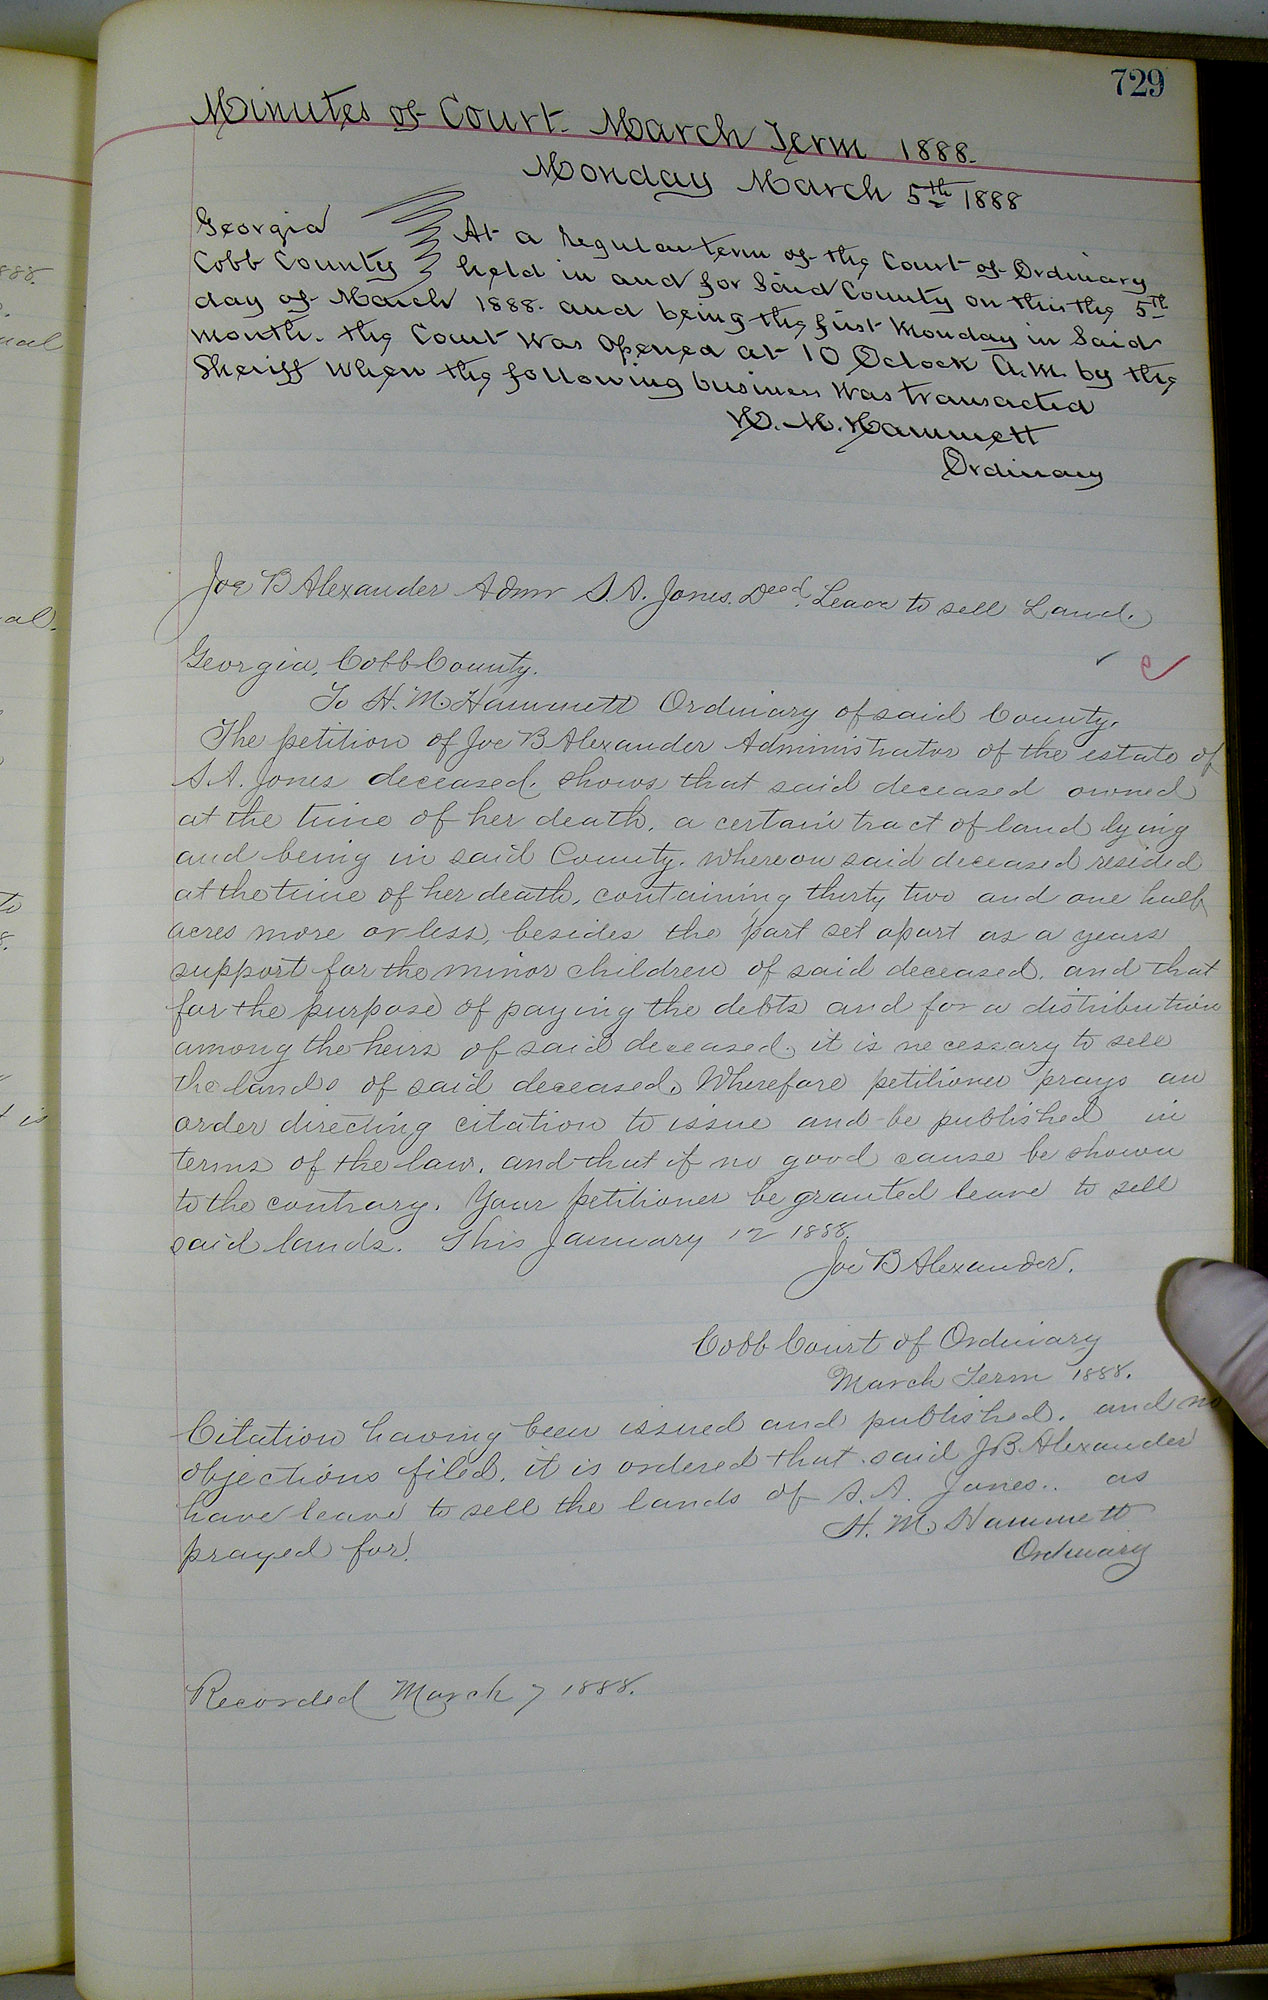 729
Minutes of Court March Term 1888.
Monday March 5th 1888
Georgia
Cobb County
At a regular term of the Court of Ordinary
held in and for Said County on this the 5th
day of March 1888. and being the first Monday in Said
month. the Court was opened at 10 Oclock A.M. by the
Sheriff when the following business was transacted
H. M. Hammett
Ordinary
Joe B Alexander Admr S. A. Jones. Decd. Leave to sell Land.
Georgia, Cobb County.
To H. M. Hammett Ordinary of said County.
The petition of Joe B Alexander Administrator of the estate of
S. A. Jones deceased. shows that said deceased owned
at the time of her death, a certain tract of land lying
and being in said County. whereon said deceased resided
at the time of her death, containing thirty two and one half
acres more or less, besides the part set apart as a years
support for the minor children of said deceased. and that
for the purpose of paying the debts and for a distribution
among the heirs of said deceased, it is necessary to sell
the lands of said deceased, Wherefore petitioner prays an
order directing citation to issue and be published in
terms of the law, and that if no good cause be shown
to the contrary. Your petitioner be granted leave to sell
said lands. This January 12 1888.
Joe B Alexander.
Cobb Court of Ordinary
March Term 1888.
Citation having been issued and published. and no
objections filed, it is ordered that said J B Alexander
have leave to sell the lands of S. A. Jones.. as
prayed for.
H. M. Hammett
Ordinary
Recorded March 7 1888.
888.
ual
al.
to
8.
t is